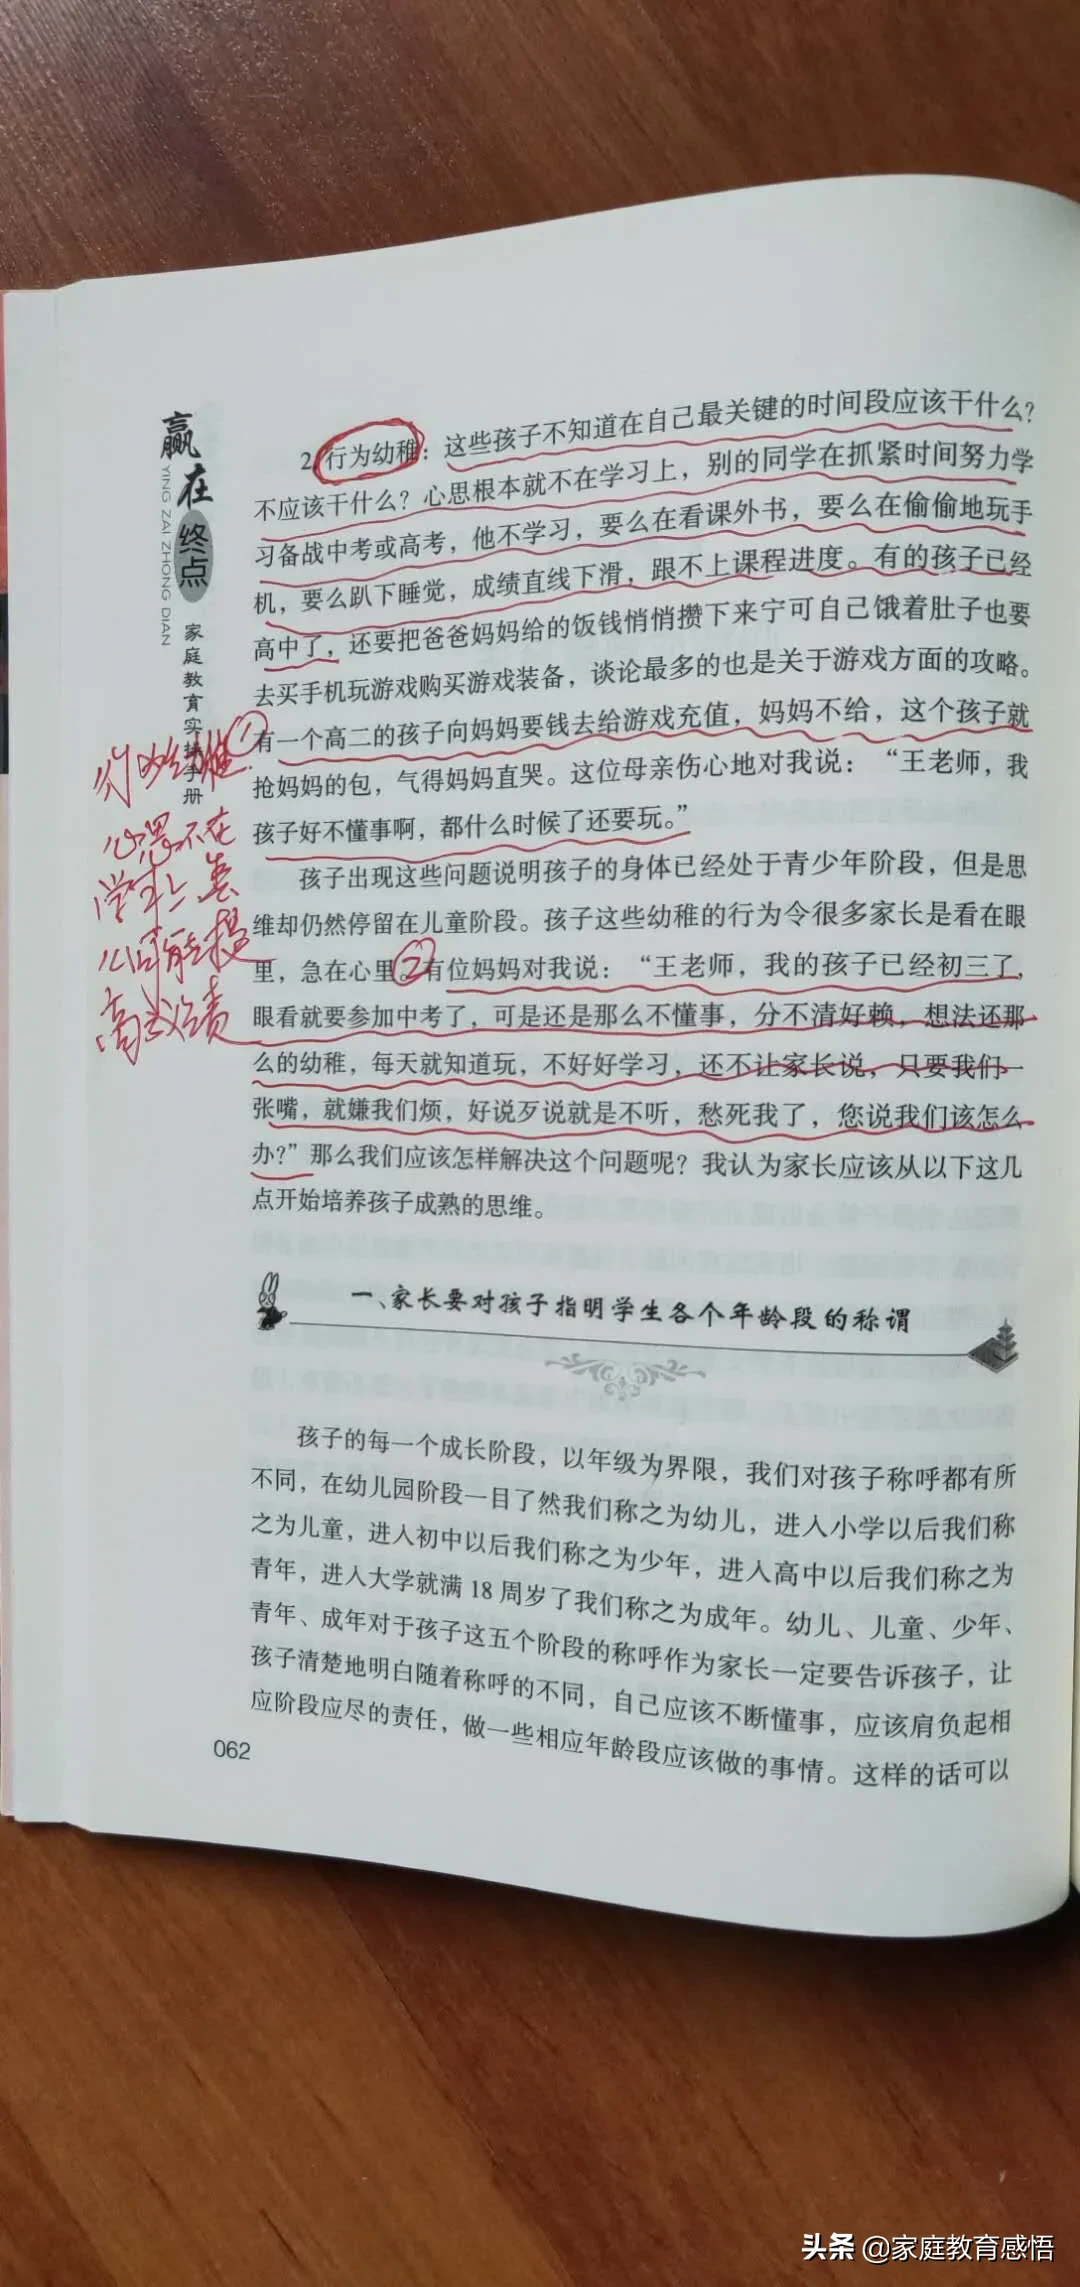 赢在终点
YING ZAI ZHONG DIAN
家庭教育实操手册
2.行为幼稚：这些孩子不知道在自己最关键的时间段应该干什么？
不应该干什么？心思根本就不在学习上，别的同学在抓紧时间努力学
习备战中考或高考，他不学习，要么在看课外书，要么在偷偷地玩手
机，要么趴下睡觉，成绩直线下滑，跟不上课程进度。有的孩子已经
高中了，还要把爸爸妈妈给的饭钱悄悄攒下来宁可自己饿着肚子也要
去买手机玩游戏购买游戏装备，谈论最多的也是关于游戏方面的攻略。
①
有一个高二的孩子向妈妈要钱去给游戏充值，妈妈不给，这个孩子就
抢妈妈的包，气得妈妈直哭。这位母亲伤心地对我说：“王老师，我
孩子好不懂事啊，都什么时候了还要玩。”
孩子出现这些问题说明孩子的身体已经处于青少年阶段，但是思
维却仍然停留在儿童阶段。孩子这些幼稚的行为令很多家长是看在眼
里，急在心里。②有位妈妈对我说：“王老师，我的孩子已经初三了，
眼看就要参加中考了，可是还是那么不懂事，分不清好赖，想法还那
么的幼稚，每天就知道玩，不好好学习，还不让家长说，只要我们一
张嘴，就嫌我们烦，好说歹说就是不听，愁死我了，您说我们该怎么
办？”那么我们应该怎样解决这个问题呢？我认为家长应该从以下这几
点开始培养孩子成熟的思维。
行为幼稚
心思不在
学习上
提
高成绩
一、家长要对孩子指明学生各个年龄段的称谓
孩子的每一个成长阶段，以年级为界限，我们对孩子称呼都有所
不同，在幼儿园阶段一目了然我们称之为幼儿，进入小学以后我们称
之为儿童，进入初中以后我们称之为少年，进入高中以后我们称之为
青年，进入大学就满 18 周岁了我们称之为成年。幼儿、儿童、少年、
青年、成年对于孩子这五个阶段的称呼作为家长一定要告诉孩子，让
孩子清楚地明白随着称呼的不同，自己应该不断懂事，应该肩负起相
应阶段应尽的责任，做一些相应年龄段应该做的事情。这样的话可以
062
头条 @家庭教育感悟